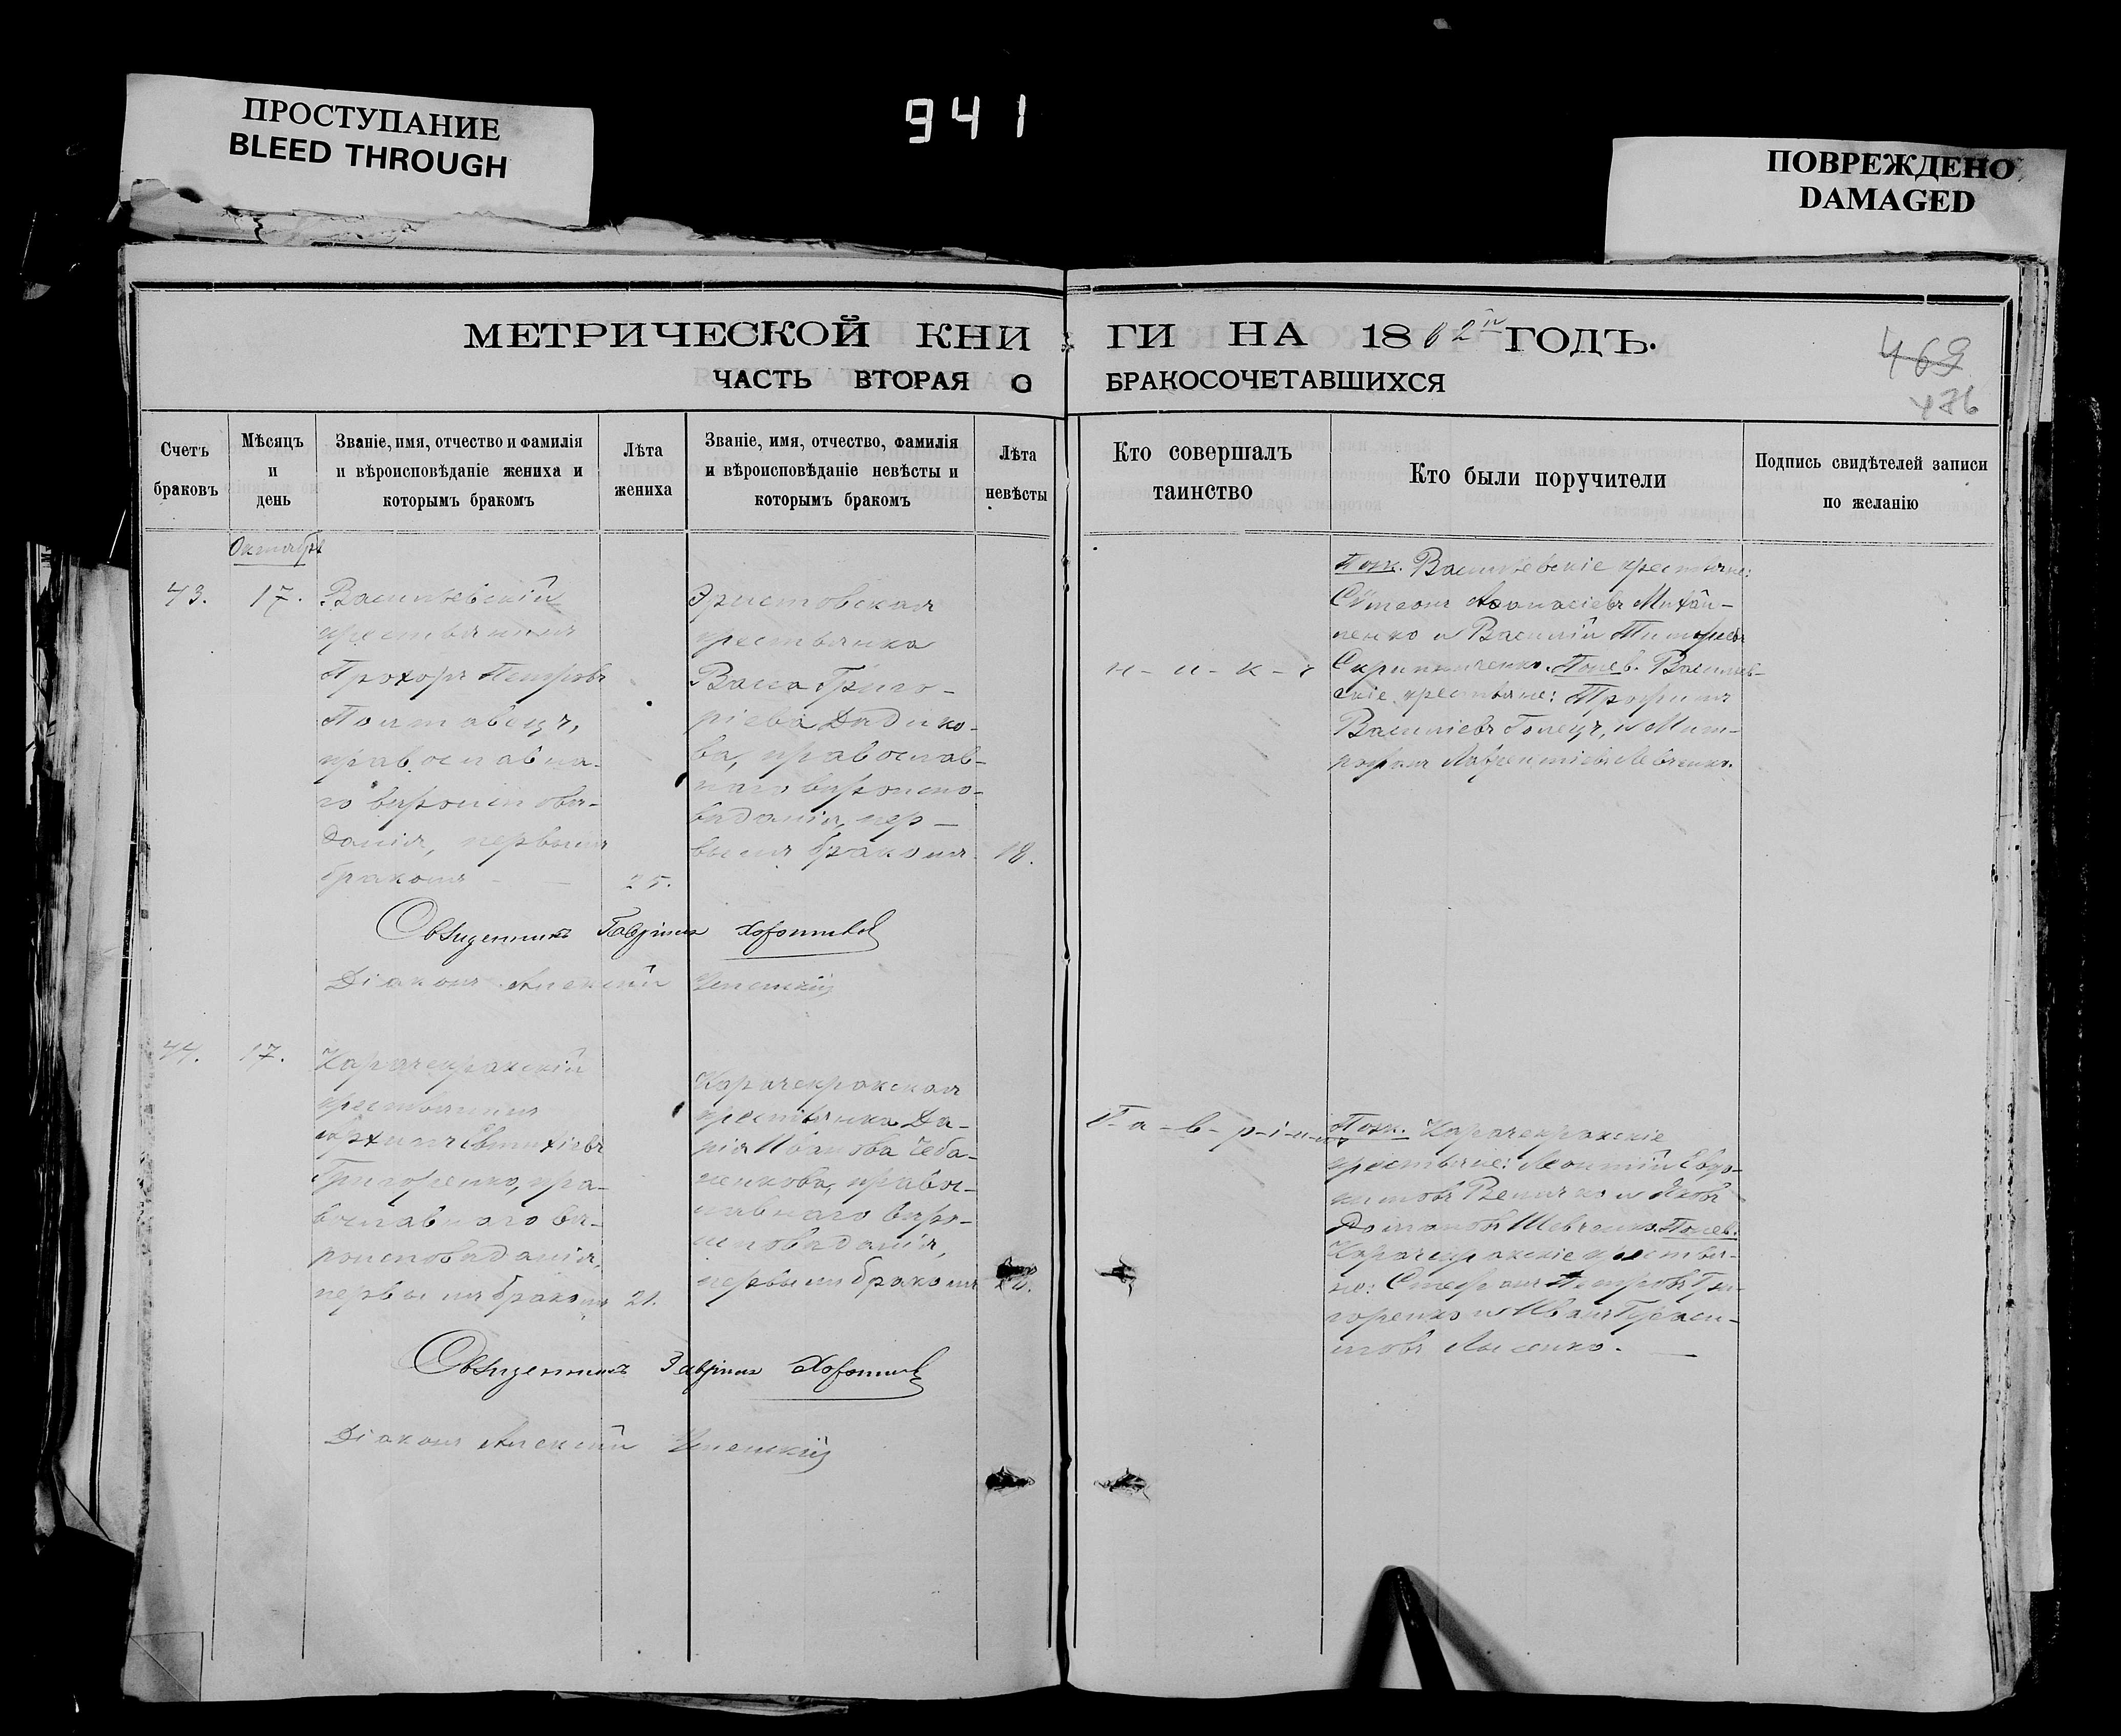 ПРОСТУПАНИЕ
BLEED THROUGH
941
ПОВРЕЖДЕНО
DAMAGED
МЕТРИЧЕСКОЙ КНИ
ГИ НА 1862й ГОДЪ.
469
476
ЧАСТЬ ВТОРАЯ О
БРАКОСОЧЕТАВШИХСЯ
Счетъ
браковъ
Мѣсяцъ
и
день
Званіе, имя, отчество и фамилія
и вѣроисповѣданіе жениха и
которымъ бракомъ
Лѣта
жениха
Званіе, имя, отчество, фамилія
и вѣроисповѣданіе невѣсты и
которымъ бракомъ
Лѣта
невѣсты
Кто совершалъ
таинство
Кто были поручители
Подпись свидѣтелей записи
по желанію
43.
17.
Васильевскій
крестьянинъ
Прохоръ Петровъ
Полтавецъ,
православна-
го вѣроисповѣ-
данія, первымъ
бракомъ
25.
крестьянка
Васса Григо-
ріева Дидико-
ва, православ-
наго вѣроиспо-
вѣданія, пер-
вымъ бракомъ
18.
н-и-к-ъ
Пож. Васильевскіе крестьяне:
Василій
крестьяне: Трофимъ
Васильевъ Голецъ, и Мит-
рофанъ Лаврентіевъ Левченко.
Священникъ Гавріилъ
Діаконъ Алексій
44.
17.
Карачекракскій
крестьянинъ
Григоренко, пра-
вославнаго вѣ-
роисповѣданія,
первымъ бракомъ
21.
Карачекракская
крестьянка Да-
рія Иванова Чеба-
ненкова, правос-
лавнаго вѣро-
исповѣданія,
первымъ бракомъ
Г-а-в-р-і-и-лъ
Пож. Карачекракскіе
крестьяне: Леонтій Евдо-
кимовъ Величко и Яковъ
Шевченко. Понев.
Карачекракскіе крестья-
не: Стефанъ Петровъ Гри-
горенко и Иванъ Гераси-
мовъ Лысенко.
Священникъ Гавріилъ
Діаконъ Алексій